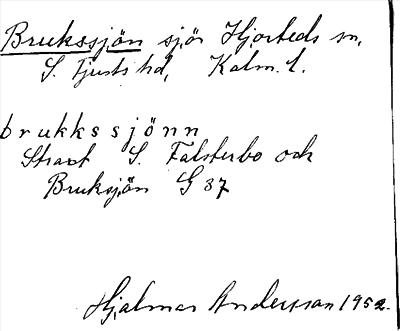 Brukssjön sjö Hjorteds sn,
S. Tjusts hd, Kalm. l.
brukkssjönn
Strax S. Falsterbo och
Bruksjön G 37
Hjalmar Andersson 1952.